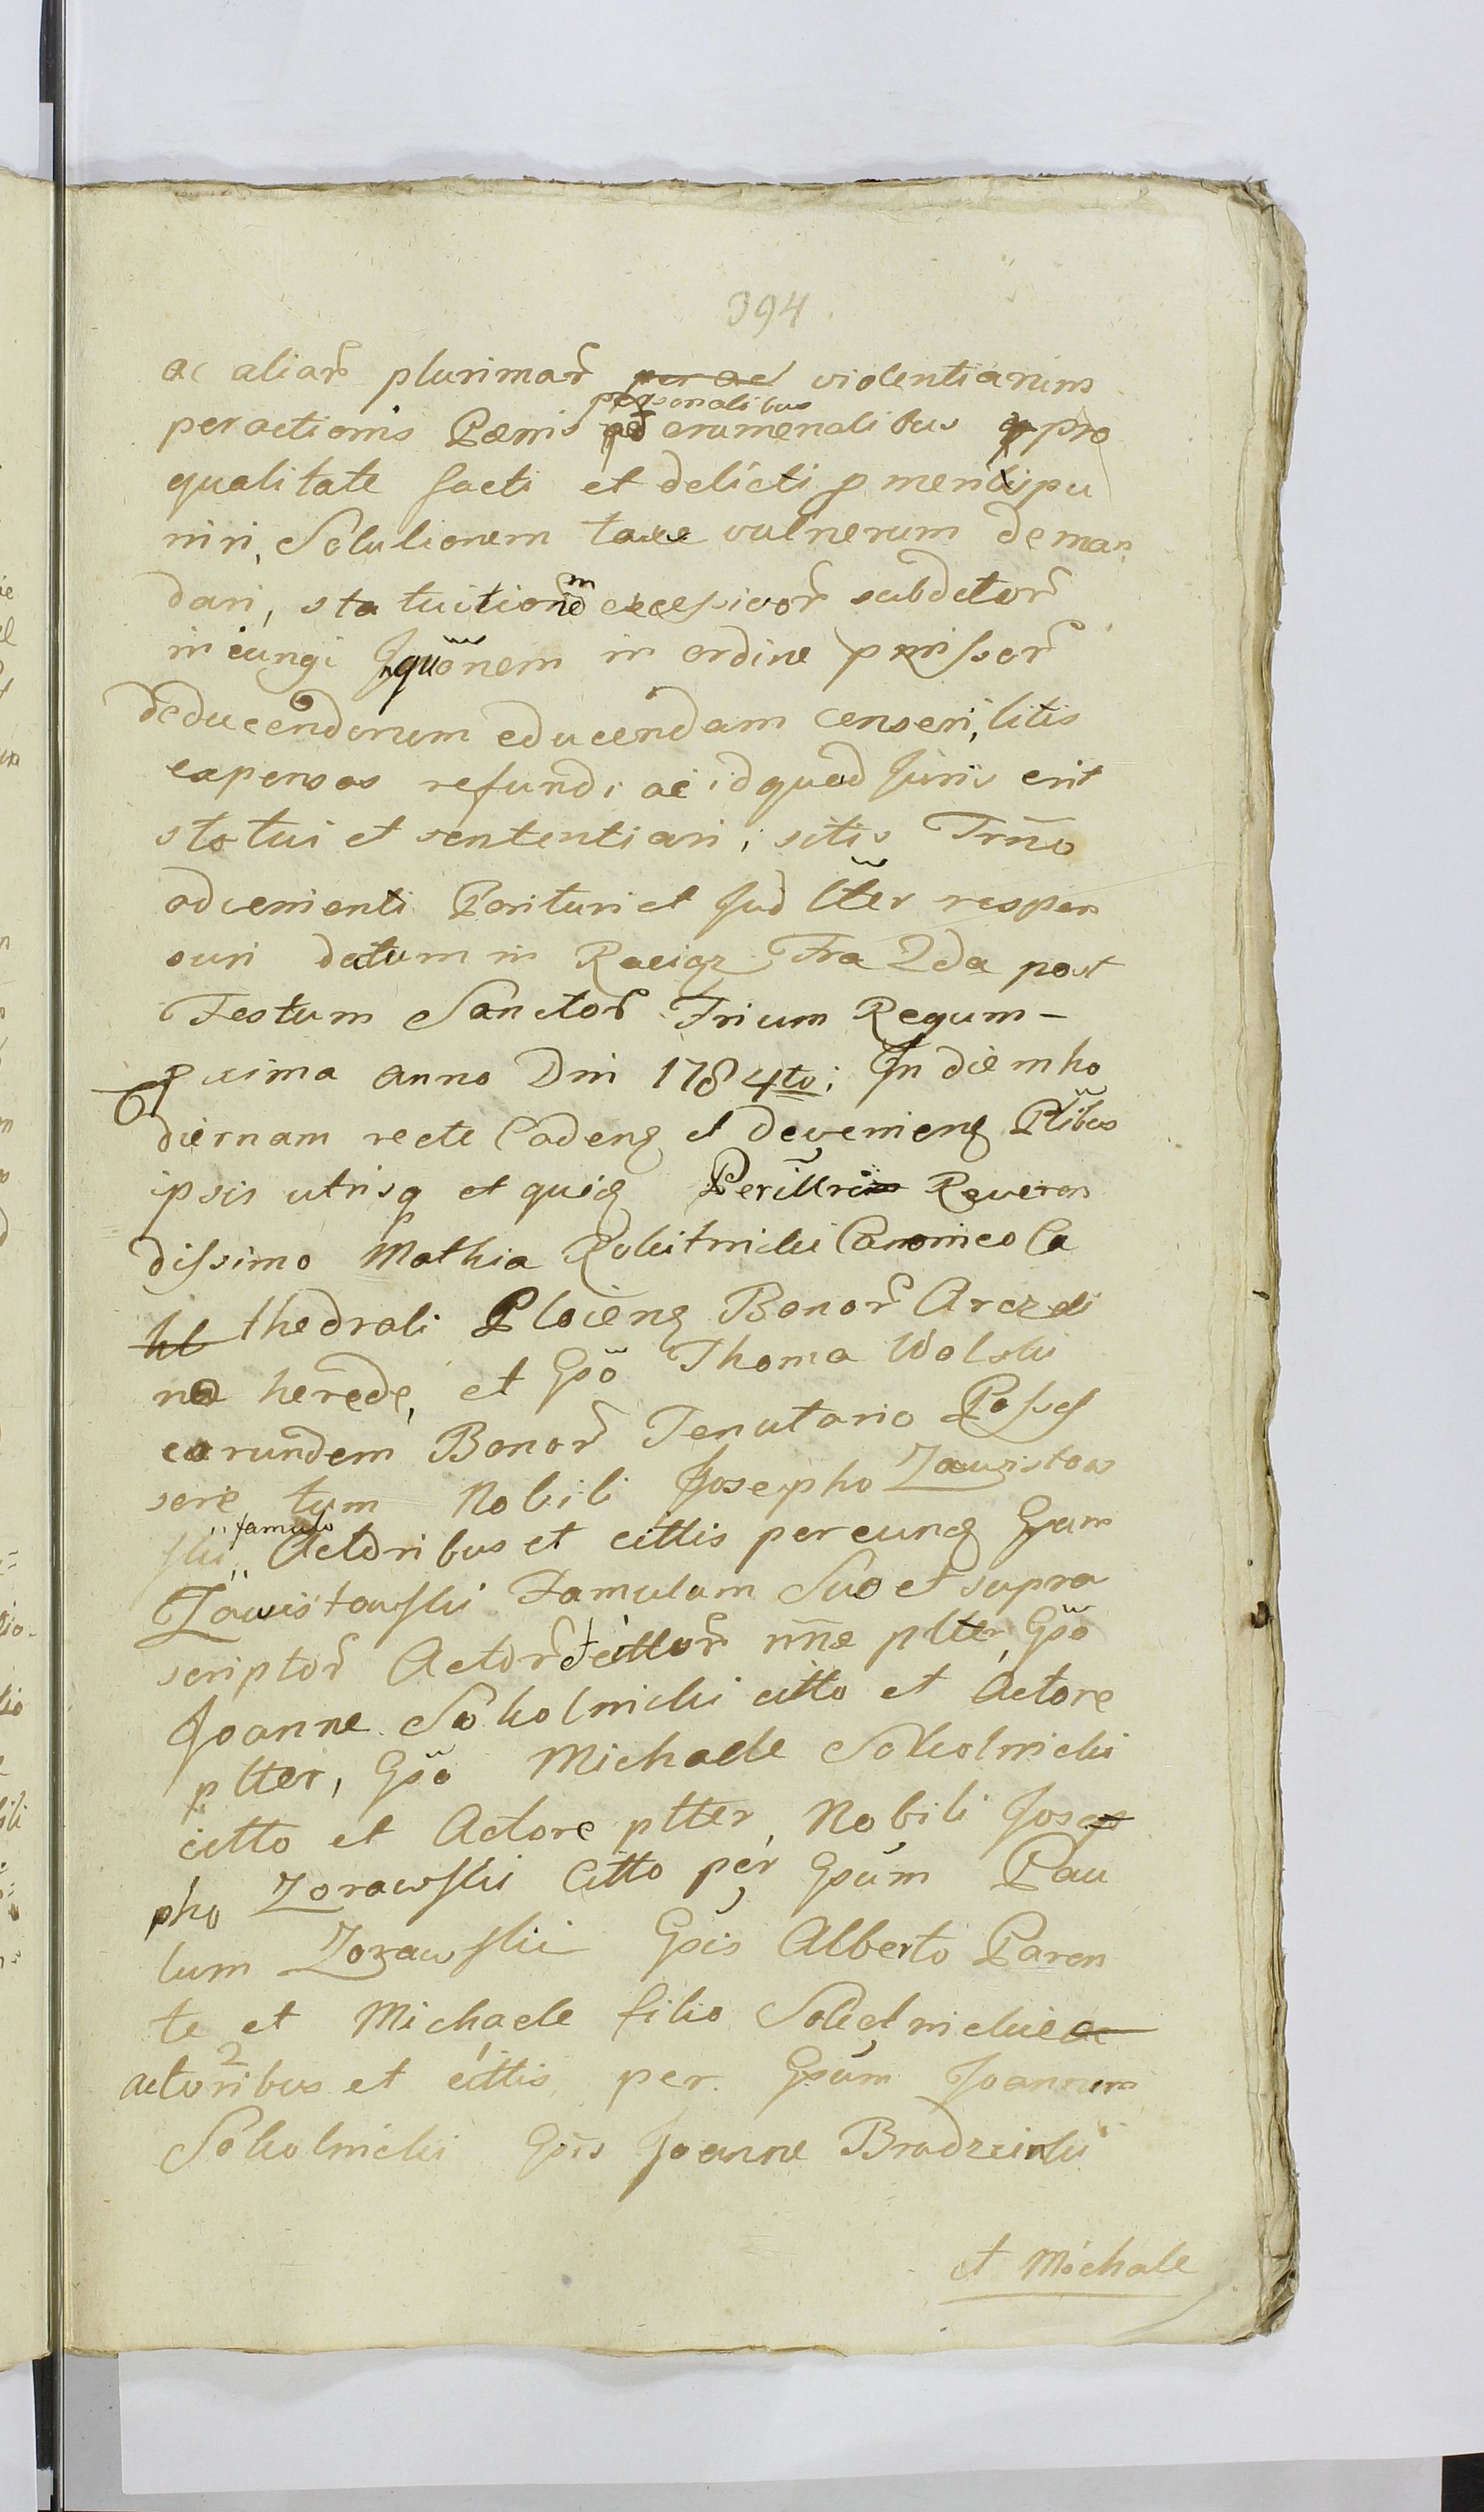 394
ac aliar plurimar per ac violentiarum
personalibus
peractionis Pænis ad crumenalibus pro
qualitate facti et delicti p meritis pu
niri, Solutionem taxe vulnerum deman
dari, statuitionem excessivor subdetor
iniungi Iquõnem in ordine pmissor
deducendorum educendam censeri, litis
expensas refundi ac id quod Juris erit
statui et sententiari, sitis Trño
advenienti Parituri et Jud lTter respon
suri datum in Raciąz Fra 2da post
Festum Sanctor Trium Regum -
pxima anno Dni 1784to; In diem ho
diernam recte Cadenq et devenienq Ptibus
ipsis utrisq et quiq Perillri Reveren
dissimo Mathia Rokitnicki Canonico Ca
thedrali Plocienq Bonor Arczeli
na herede, et Gso Thoma Wolski
earundem Bonor Tenutario Posses
sore tum Nobili Josepho Zawistow
famulo
ski Actoribus et cittis per eunq Gsum
Zawistowski Famulum Suo et supra
scriptor Actor et cittor nñe pltter, Gso
Joanne Sokolnicki citto et Actore
pltter, Gso Michaele Sokolnicki
citto et Actore ptter, Nobili Jose
pho Zorawski Citto per Gsum Pau
lum Zorawski Gsis Alberto Paren
te et Michaele filio Sokolnickie ac
actoribus et cittis per Gsum Joannem
Sokolnicki Gsis Joanne Brodzinski
et Michale